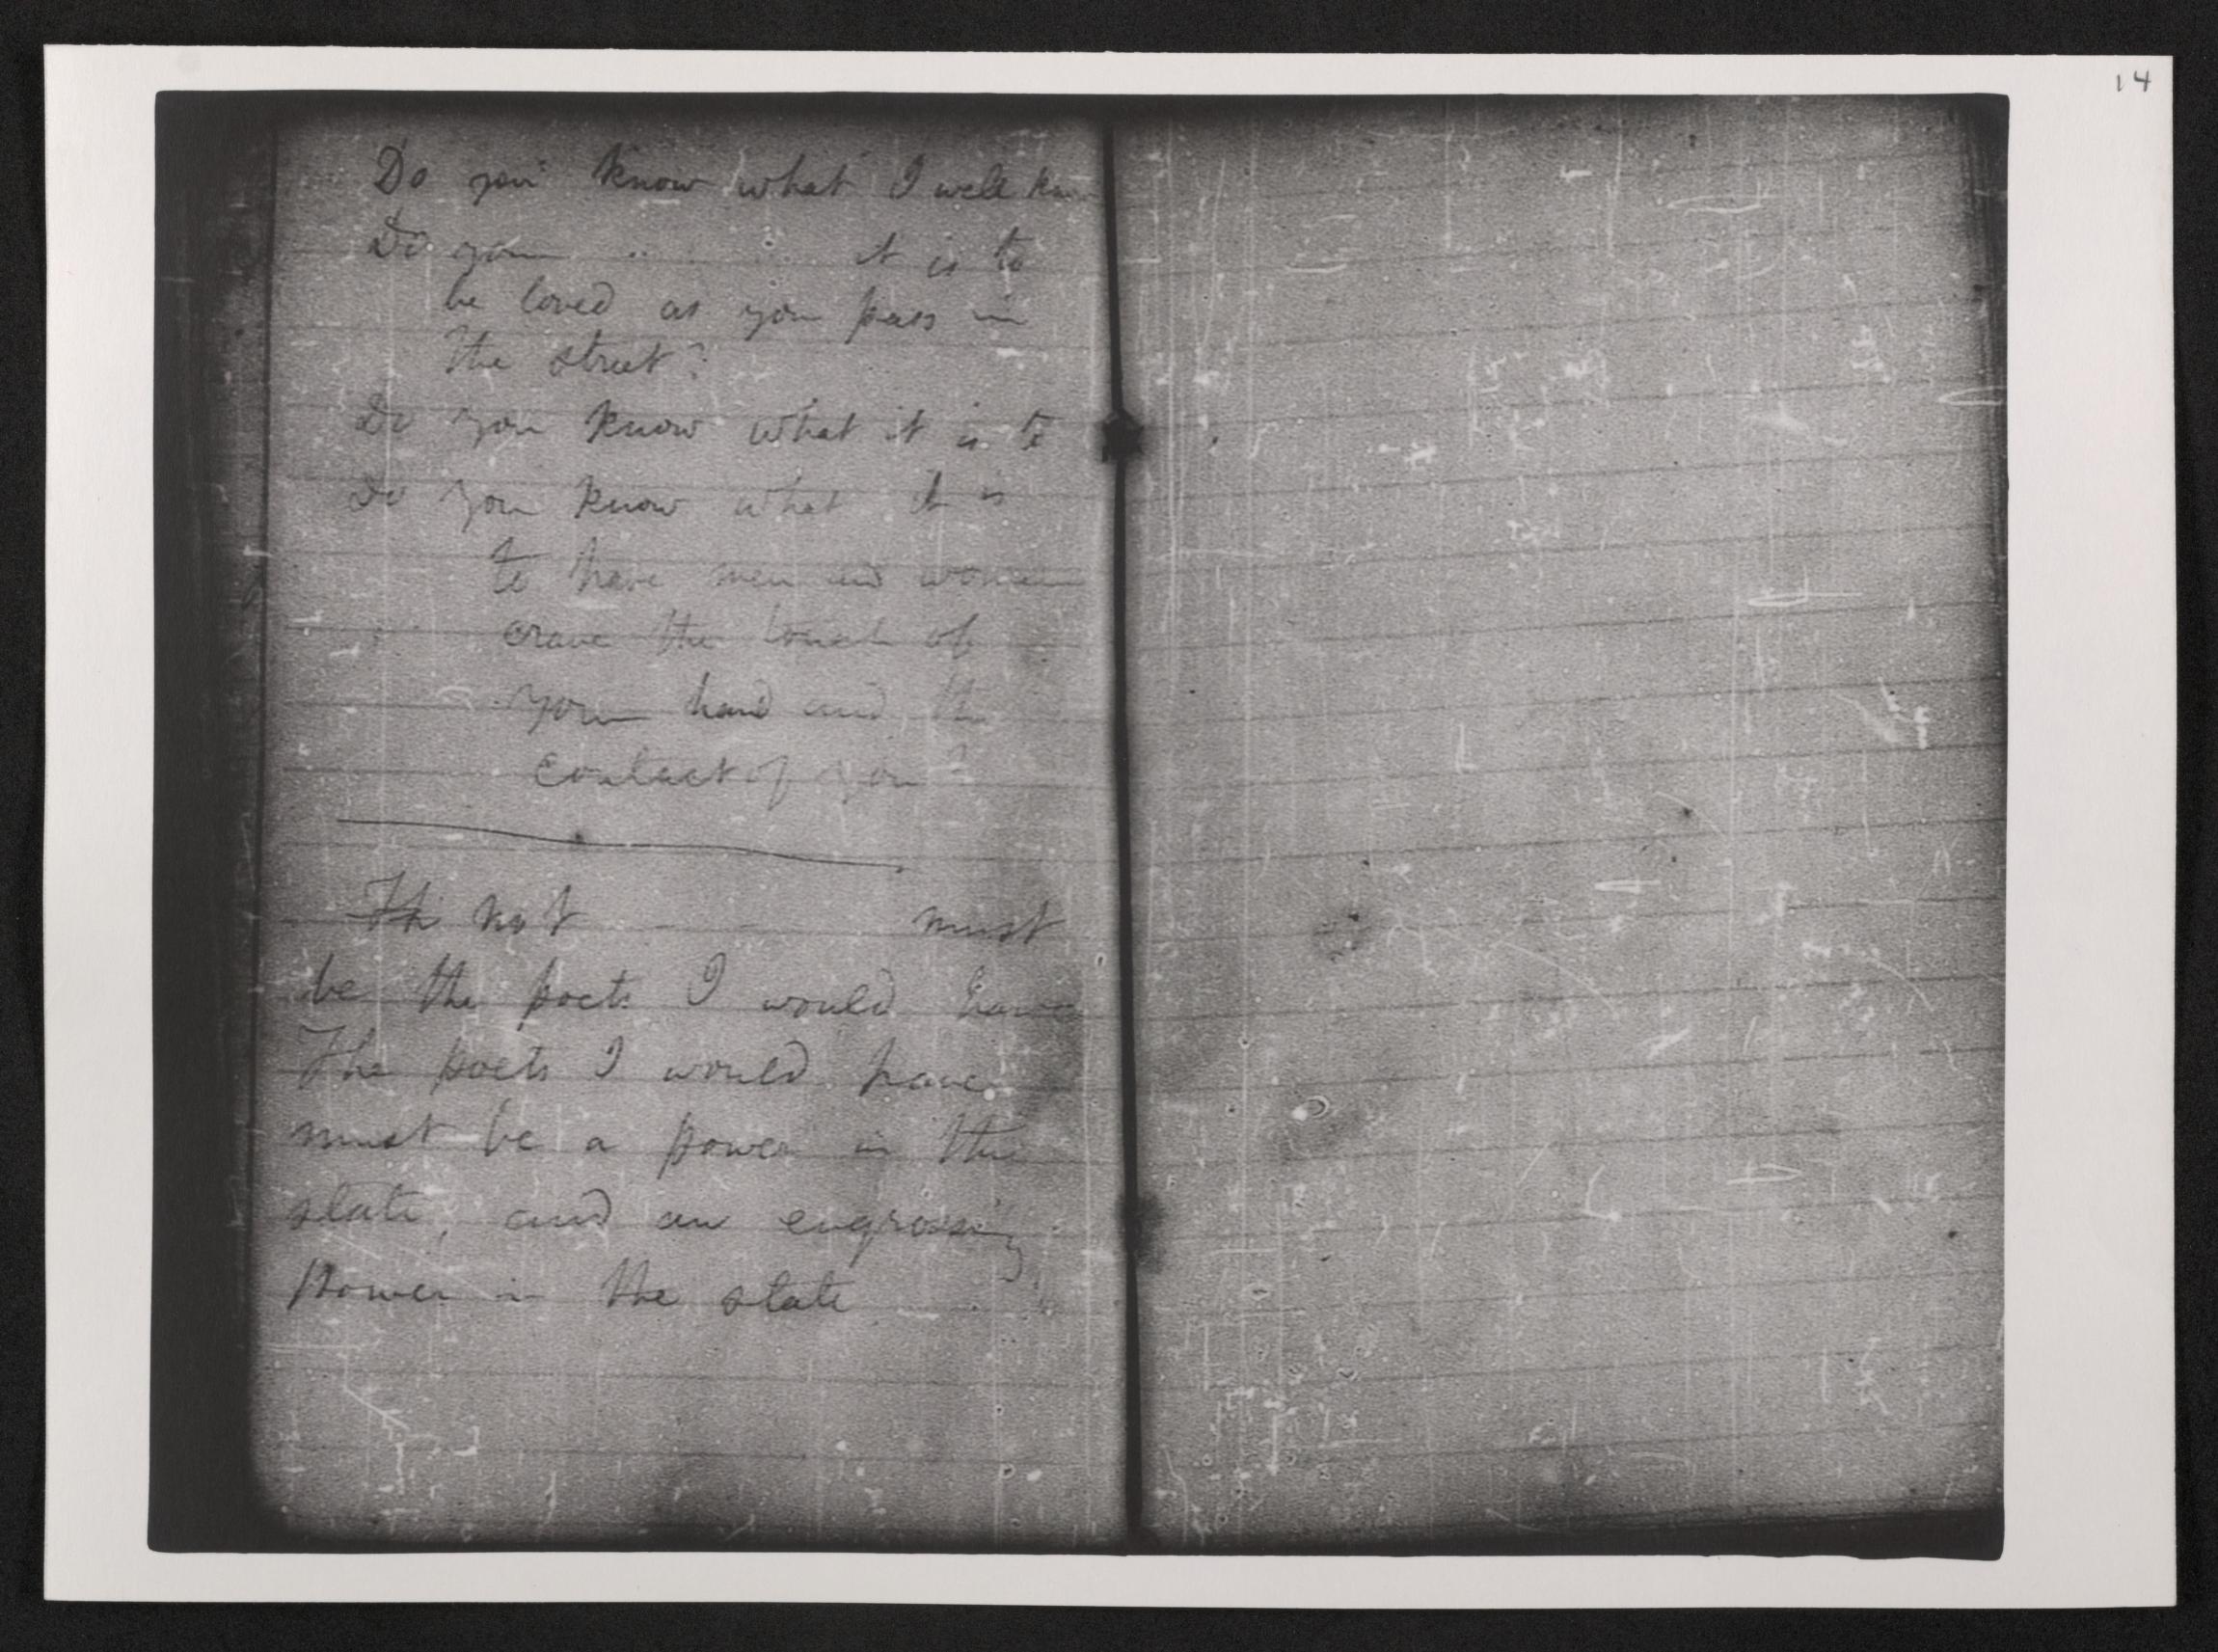 14
Do you know what I well kn
Do you " " it is to
be loved as you pass in
the street?
Do you know what it is to
Do you know what it is
to have men and women
crave the touch of
your hand and the
contact of you?
Th not must
be the poets I would have
The poets I would have
must be a power in the
state, and an engrossing
power in the state